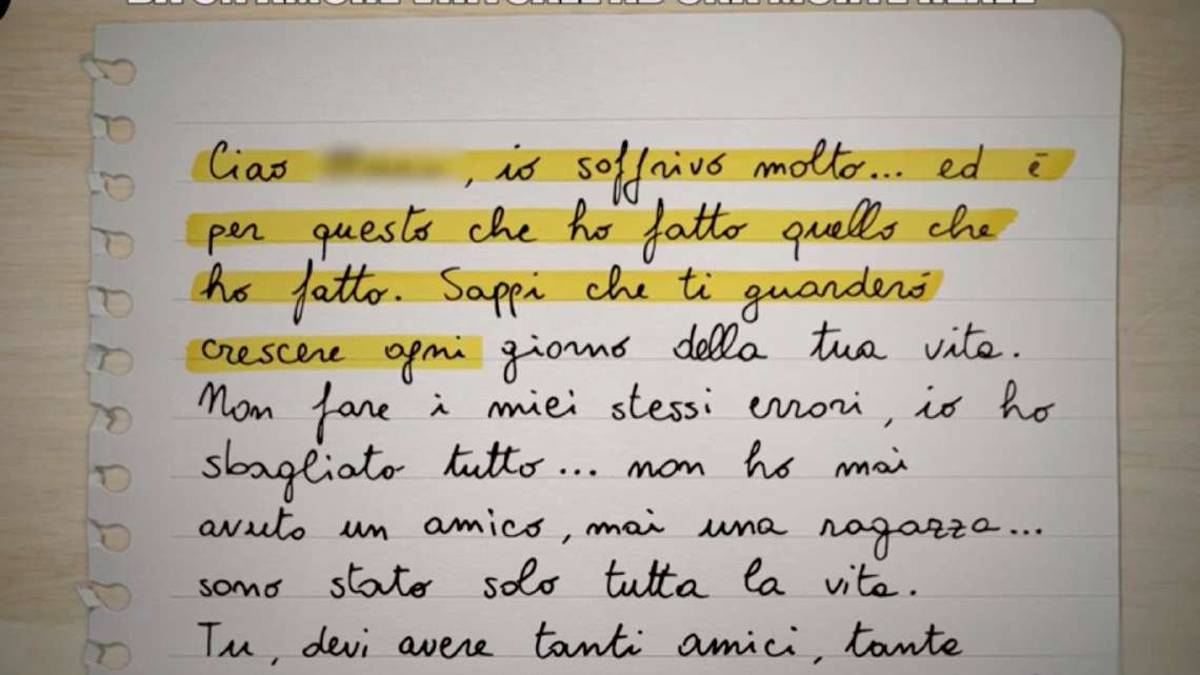 Ciao , io soffrivo molto... ed è
per questo che ho fatto quello che
ho fatto. Sappi che ti guarderò
crescere ogni giorno della tua vita.
Non fare i miei stessi errori, io ho
sbagliato tutto... non ho mai
avuto un amico, mai una ragazza...
sono stato solo tutta la vita.
Tu, devi avere tanti amici, tante